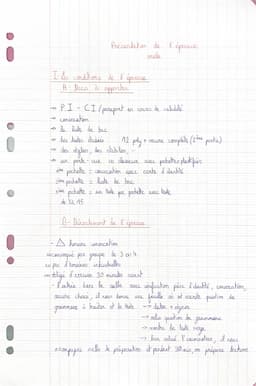 Présentation de l'épreuve
orale
I - Les conditions de l'épreuve
A. Docs à apporter
→ P.I - CI / passeport en cours de validité
→ convocation
→ la liste de bac
→ les textes étudiés 12 poly + œuvre complète (2ème partie)
→ des stylos, des stabilos, -
→ un porte-vue où classeur avec pochettes plastifiées
1ère pochette = convocation avec carte d'identité
2ème pochette = liste de bac
3ème pochette = un texte par pochette avec texte
de
B - Déroulement de l'épreuve
- ⚠ horaire convocation
convoqué par groupe de 3 ou 4
ou pas d'horaires individuelles
→ obligé d'arriver 30 minutes avant
- L'entrée dans la salle avec vérification pièce d'identité, convocation,
œuvre choisi, il vous donne une feuille où est écrit question de
grammaire à traiter et le texte → lettre + lignes
→ cette question de grammaire
→ montre le texte
→ bien relire l'convocation, il vous
accompagne salle de préparation et pendant 30 min, on prépare lecture